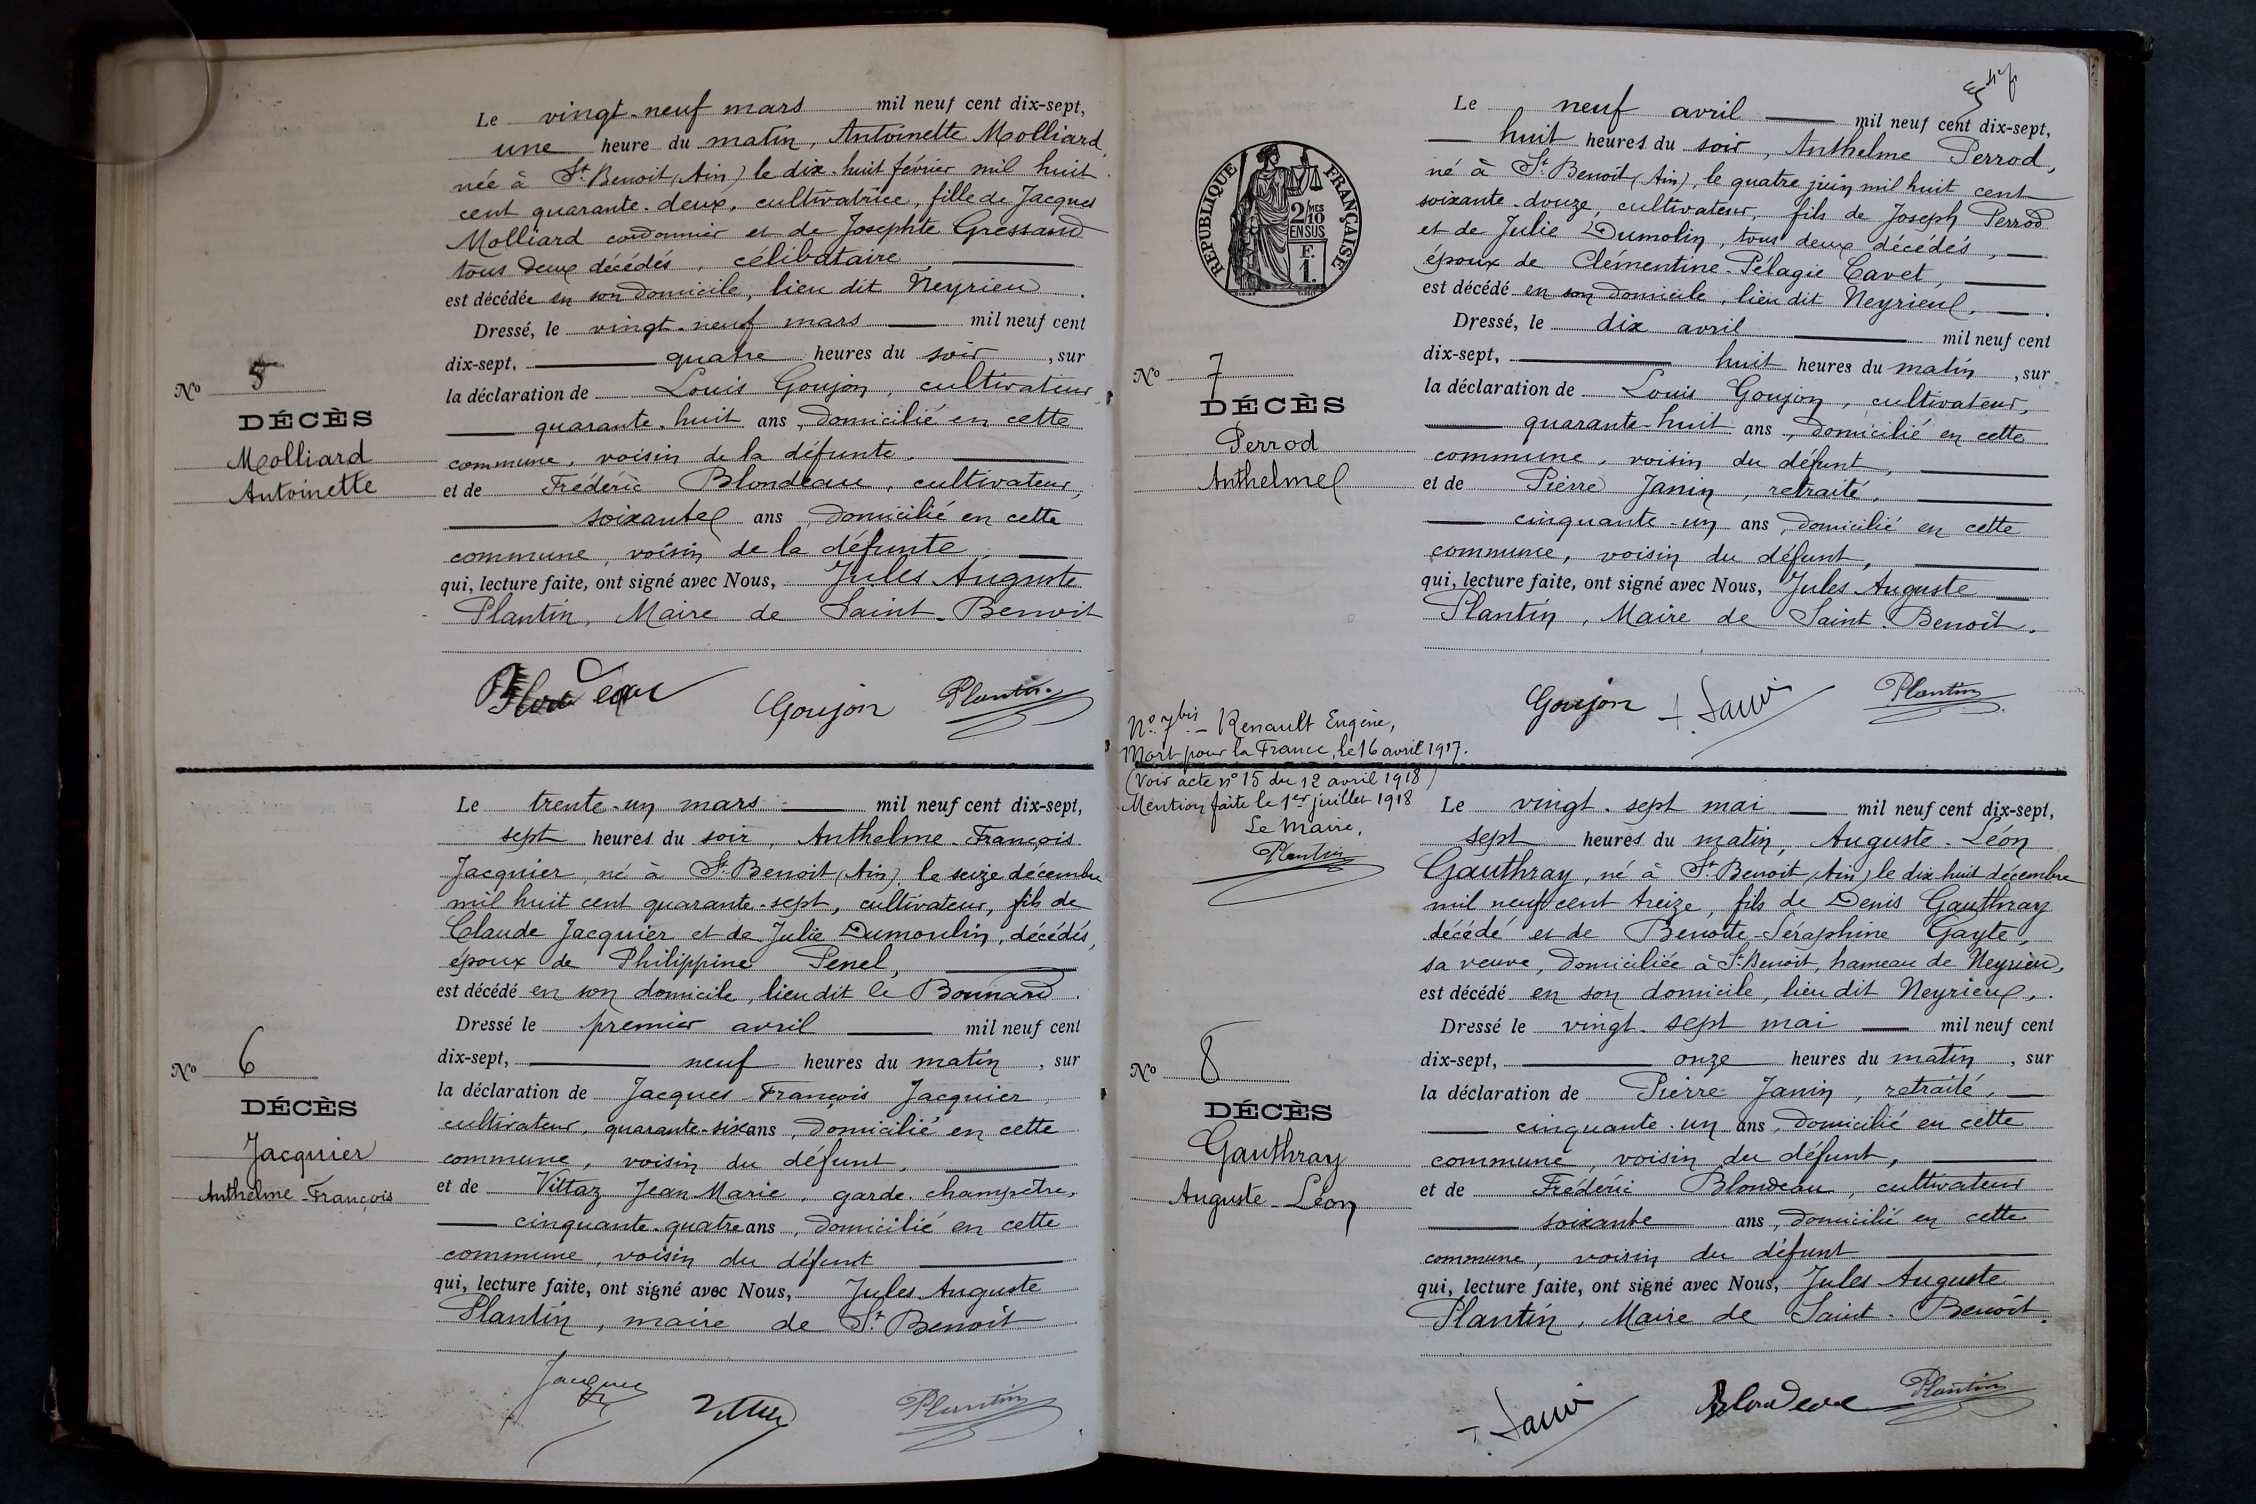 Le vingt-neuf mars mil neuf cent dix-sept,
une heure du matin, Antoinette Molliard,
née à St Benoit (Ain) le dix-huit février mil huit
cent quarante-deux, cultivatrice, fille de Jacques
Molliard cordonnier et de Josephte Gressand
tous deux décédés, célibataire
est décédée en son domicile, lieu dit Neyrieu.
Dressé, le vingt-neuf mars mil neuf cent
dix-sept, quatre heures du soir, sur
la déclaration de Louis Goujon, cultivateur
quarante-huit ans, domicilié en cette
commune, voisin de la défunte.
et de Frédéric Blondeau, cultivateur,
soixante ans domicilié en cette
commune, voisin de la défunte
qui, lecture faite, ont signé avec Nous, Jules Auguste
Plantin, Maire de Saint-Benoit
No 5
DÉCÈS
Molliard
Antoinette
Blondeau Goujon Plantin
Le trente-un mars mil neuf cent dix-sept,
sept heures du soir, Anthelme-François
Jacquier, né à St Benoit (Ain) le seize décembre
mil huit cent quarante-sept, cultivateur, fils de
Claude Jacquier et de Julie Dumoulin, décédés,
époux de Philippine Penel,
est décédé en son domicile, lieu dit le Bonnard.
Dressé le premier avril mil neuf cent
dix-sept, neuf heures du matin, sur
la déclaration de Jacques François Jacquier
cultivateur, quarante-six ans, domicilié en cette
commune, voisin du défunt,
et de Vittaz Jean Marie, garde-champêtre,
cinquante-quatre ans, domicilié en cette
commune, voisin du défunt
qui, lecture faite, ont signé avec Nous, Jules Auguste
Plantin, maire de St Benoit
No 6
DÉCÈS
Jacquier
Anthelme-François
Jacquier Vittaz Plantin
RÉPUBLIQUE FRANÇAISE
2/10 MES
EN SUS
F.
1.
Le neuf avril mil neuf cent dix-sept,
huit heures du soir, Anthelme Perrod,
né à St Benoit (Ain), le quatre juin mil huit cent
soixante-douze, cultivateur, fils de Joseph Perrod
et de Julie Dumolin, tous deux décédés,
époux de Clémentine-Pélagie Cavet,
est décédé en son domicile, lieu dit Neyrieu.
Dressé, le dix avril mil neuf cent
dix-sept, huit heures du matin, sur
la déclaration de Louis Goujon, cultivateur,
quarante-huit ans, domicilié en cette
commune, voisin du défunt,
et de Pierre Janin, retraité,
cinquante-un ans, domicilié en cette
commune, voisin du défunt,
qui, lecture faite, ont signé avec Nous, Jules Auguste
Plantin, Maire de Saint-Benoit.
No 7
DÉCÈS
Perrod
Anthelme
Goujon Janin Plantin
No 7bis – Renault Eugène,
Mort pour la France, le 16 avril 1917.
(Voir acte no 15 du 12 avril 1918)
Mention faite le 1er juillet 1918
Le Maire,
Plantin
Le vingt-sept mai mil neuf cent dix-sept,
sept heures du matin, Auguste-Léon
Gauthray, né à St Benoit (Ain) le dix huit décembre
mil neuf cent treize, fils de Denis Gauthray
décédé et de Benoite-Séraphine Gayte,
sa veuve, domiciliée à St Benoit, hameau de Neyrieu,
est décédé en son domicile, lieu dit Neyrieu.
Dressé le vingt-sept mai mil neuf cent
dix-sept, onze heures du matin, sur
la déclaration de Pierre Janin, retraité,
cinquante-un ans, domicilié en cette
commune, voisin du défunt,
et de Frédéric Blondeau, cultivateur
soixante ans, domicilié en cette
commune, voisin du défunt
qui, lecture faite, ont signé avec Nous, Jules Auguste
Plantin, Maire de Saint-Benoit.
No 8
DÉCÈS
Gauthray
Auguste-Léon
Janin Blondeau Plantin